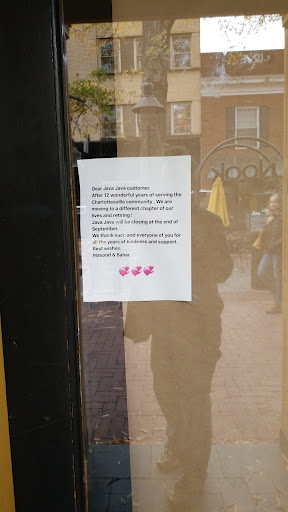 Dear Java Java customer,
After 12 wonderful years of serving the
Charlottesville community , We are
moving to a different chapter of our
lives and retiring !
Java Java will be closing at the end of
September.
We thank each and everyone of you for
all the years of kindness and support
Best wishes,
Masood & Bahar
Nook